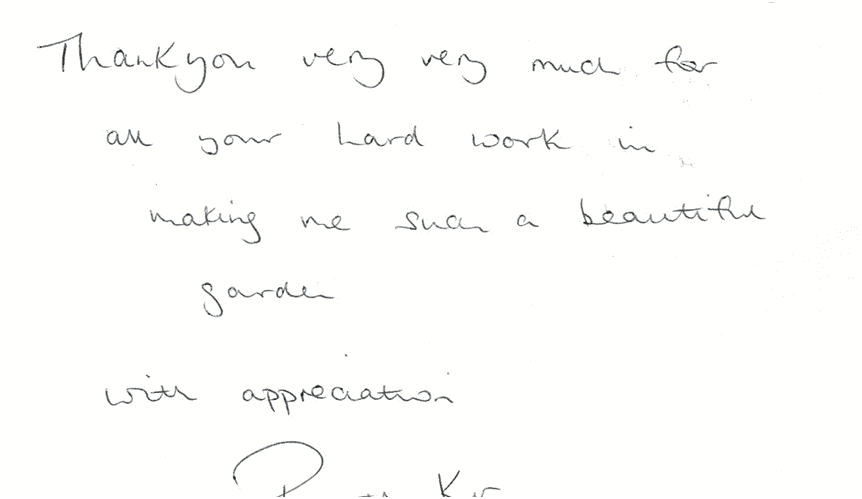 Thankyou very very much for
all your hard work in
making me such a beautiful
garden
with appreciation